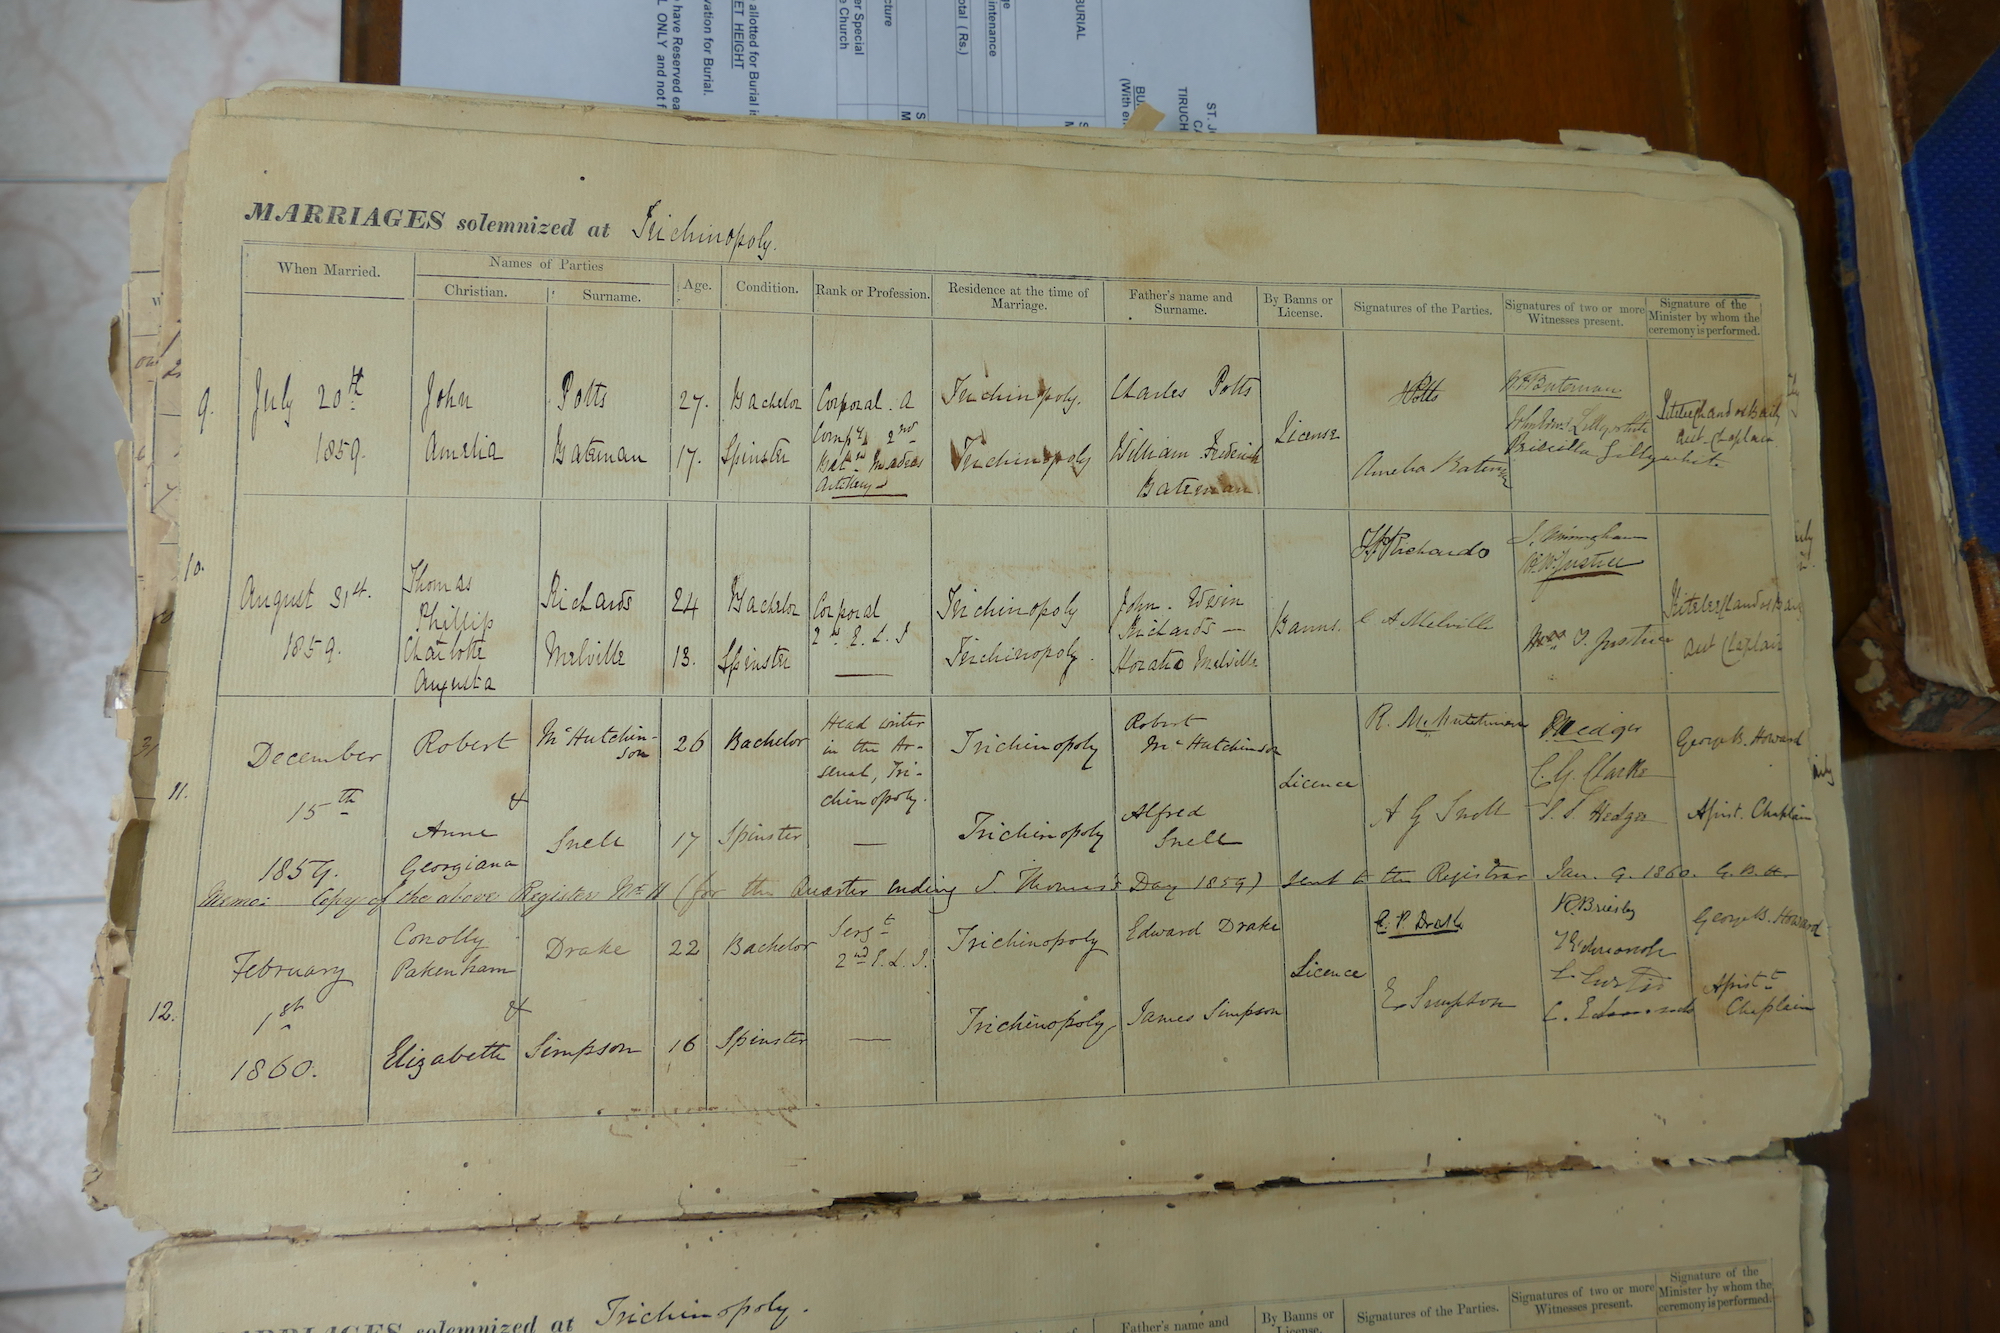 MARRIAGES solemnized at Trichinopoly.
When Married.
Names of Parties
Christian.
Surname.
Age.
Condition.
Rank or Profession.
Residence at the time of
Marriage.
Father's name and
Surname.
By Banns or
License.
Signatures of the Parties.
Signatures of two or more
Witnesses present.
Signature of the
Minister by whom the
ceremony is performed.
9.
July 20th
1859.
John
Potts
27.
Bachelor
Corporal. A
Compy 2nd
Batn Madras
Artillery
Trichinopoly.
Charles Potts
License
Potts
Amelia
Bateman
17.
Spinster
Trichinopoly
William Frederick
Bateman
Amelia Bateman
Bateman
Lillywhite
Priscilla Lillywhite
Asst. Chaplain
10.
August 31st.
1859.
Thomas
Phillip
Richards
24
Bachelor
Corporal
2nd E. L. I
Trichinopoly
John. Edwin
Richards
Banns.
Richards
Charlotte
Augusta
Melville
13.
Spinster
Trichinopoly.
Horatio Melville
C A Melville
Justice
Justice
Asst Chaplain
11.
December
15th
1859.
Robert
McHutchin-
son
26
Bachelor
Head writer
in the Ar-
senal, Tri-
chinopoly.
Trichinopoly
Robert
McHutchinson
Licence
R. McHutchinson
&
Anne
Georgiana
Snell
17
Spinster
Trichinopoly
Alfred
Snell
A G Snell
C. G. Clarke
S. S. Hedger
George B. Howard
Assist. Chaplain
Memo: Copy of the above Register No 11 (for the Quarter ending S. Thomas's Day 1859) sent to the Registrar Jan. 9. 1860. G. B. H.
12.
February
1st
1860.
Conolly
Pakenham
Drake
22
Bachelor
Sergt
2nd E. L. I.
Trichinopoly
Edward Drake
Licence
C. P. Drake
&
Elizabeth
Simpson
16
Spinster
Trichinopoly
James Simpson
E Simpson
R. Briesly
C. Edmonds
George B. Howard
Assistt
Chaplain
MARRIAGES solemnized at Trichinopoly.
Father's name and
By Banns or
License.
Signatures of the Parties.
Signatures of two or more
Witnesses present.
Signature of the
Minister by whom the
ceremony is performed.
BURIAL